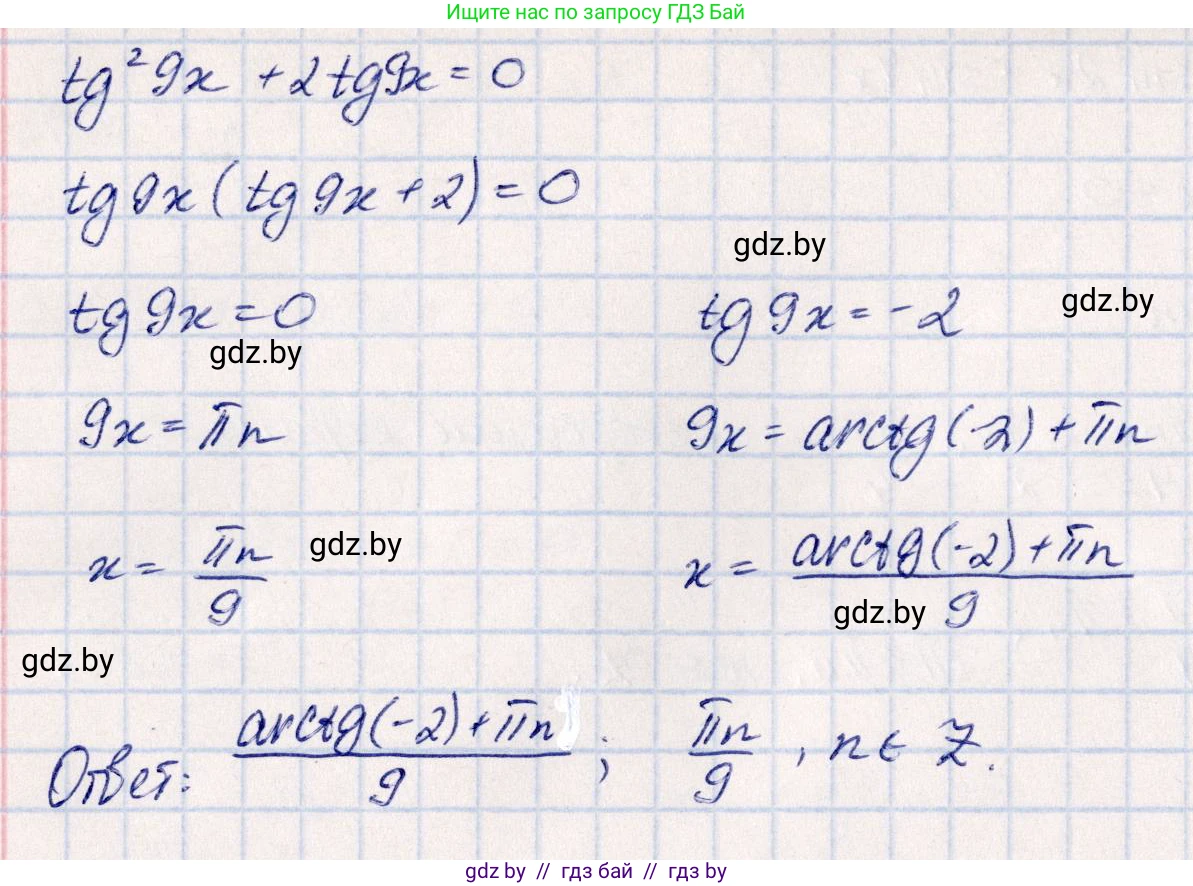 Ищите нас по запросу ГДЗ Бай
tg²9x + 2tg9x = 0
tg9x(tg9x + 2) = 0
gdz.by
tg9x = 0 tg9x = -2 gdz.by
gdz.by
9x = πn 9x = arctg(-2) + πn
x = πn/9 gdz.by x = (arctg(-2) + πn)/9
gdz.by
gdz.by
Ответ: (arctg(-2) + πn)/9 ; πn/9 , n ∈ Z.
gdz.by // гдз бай // гдз by